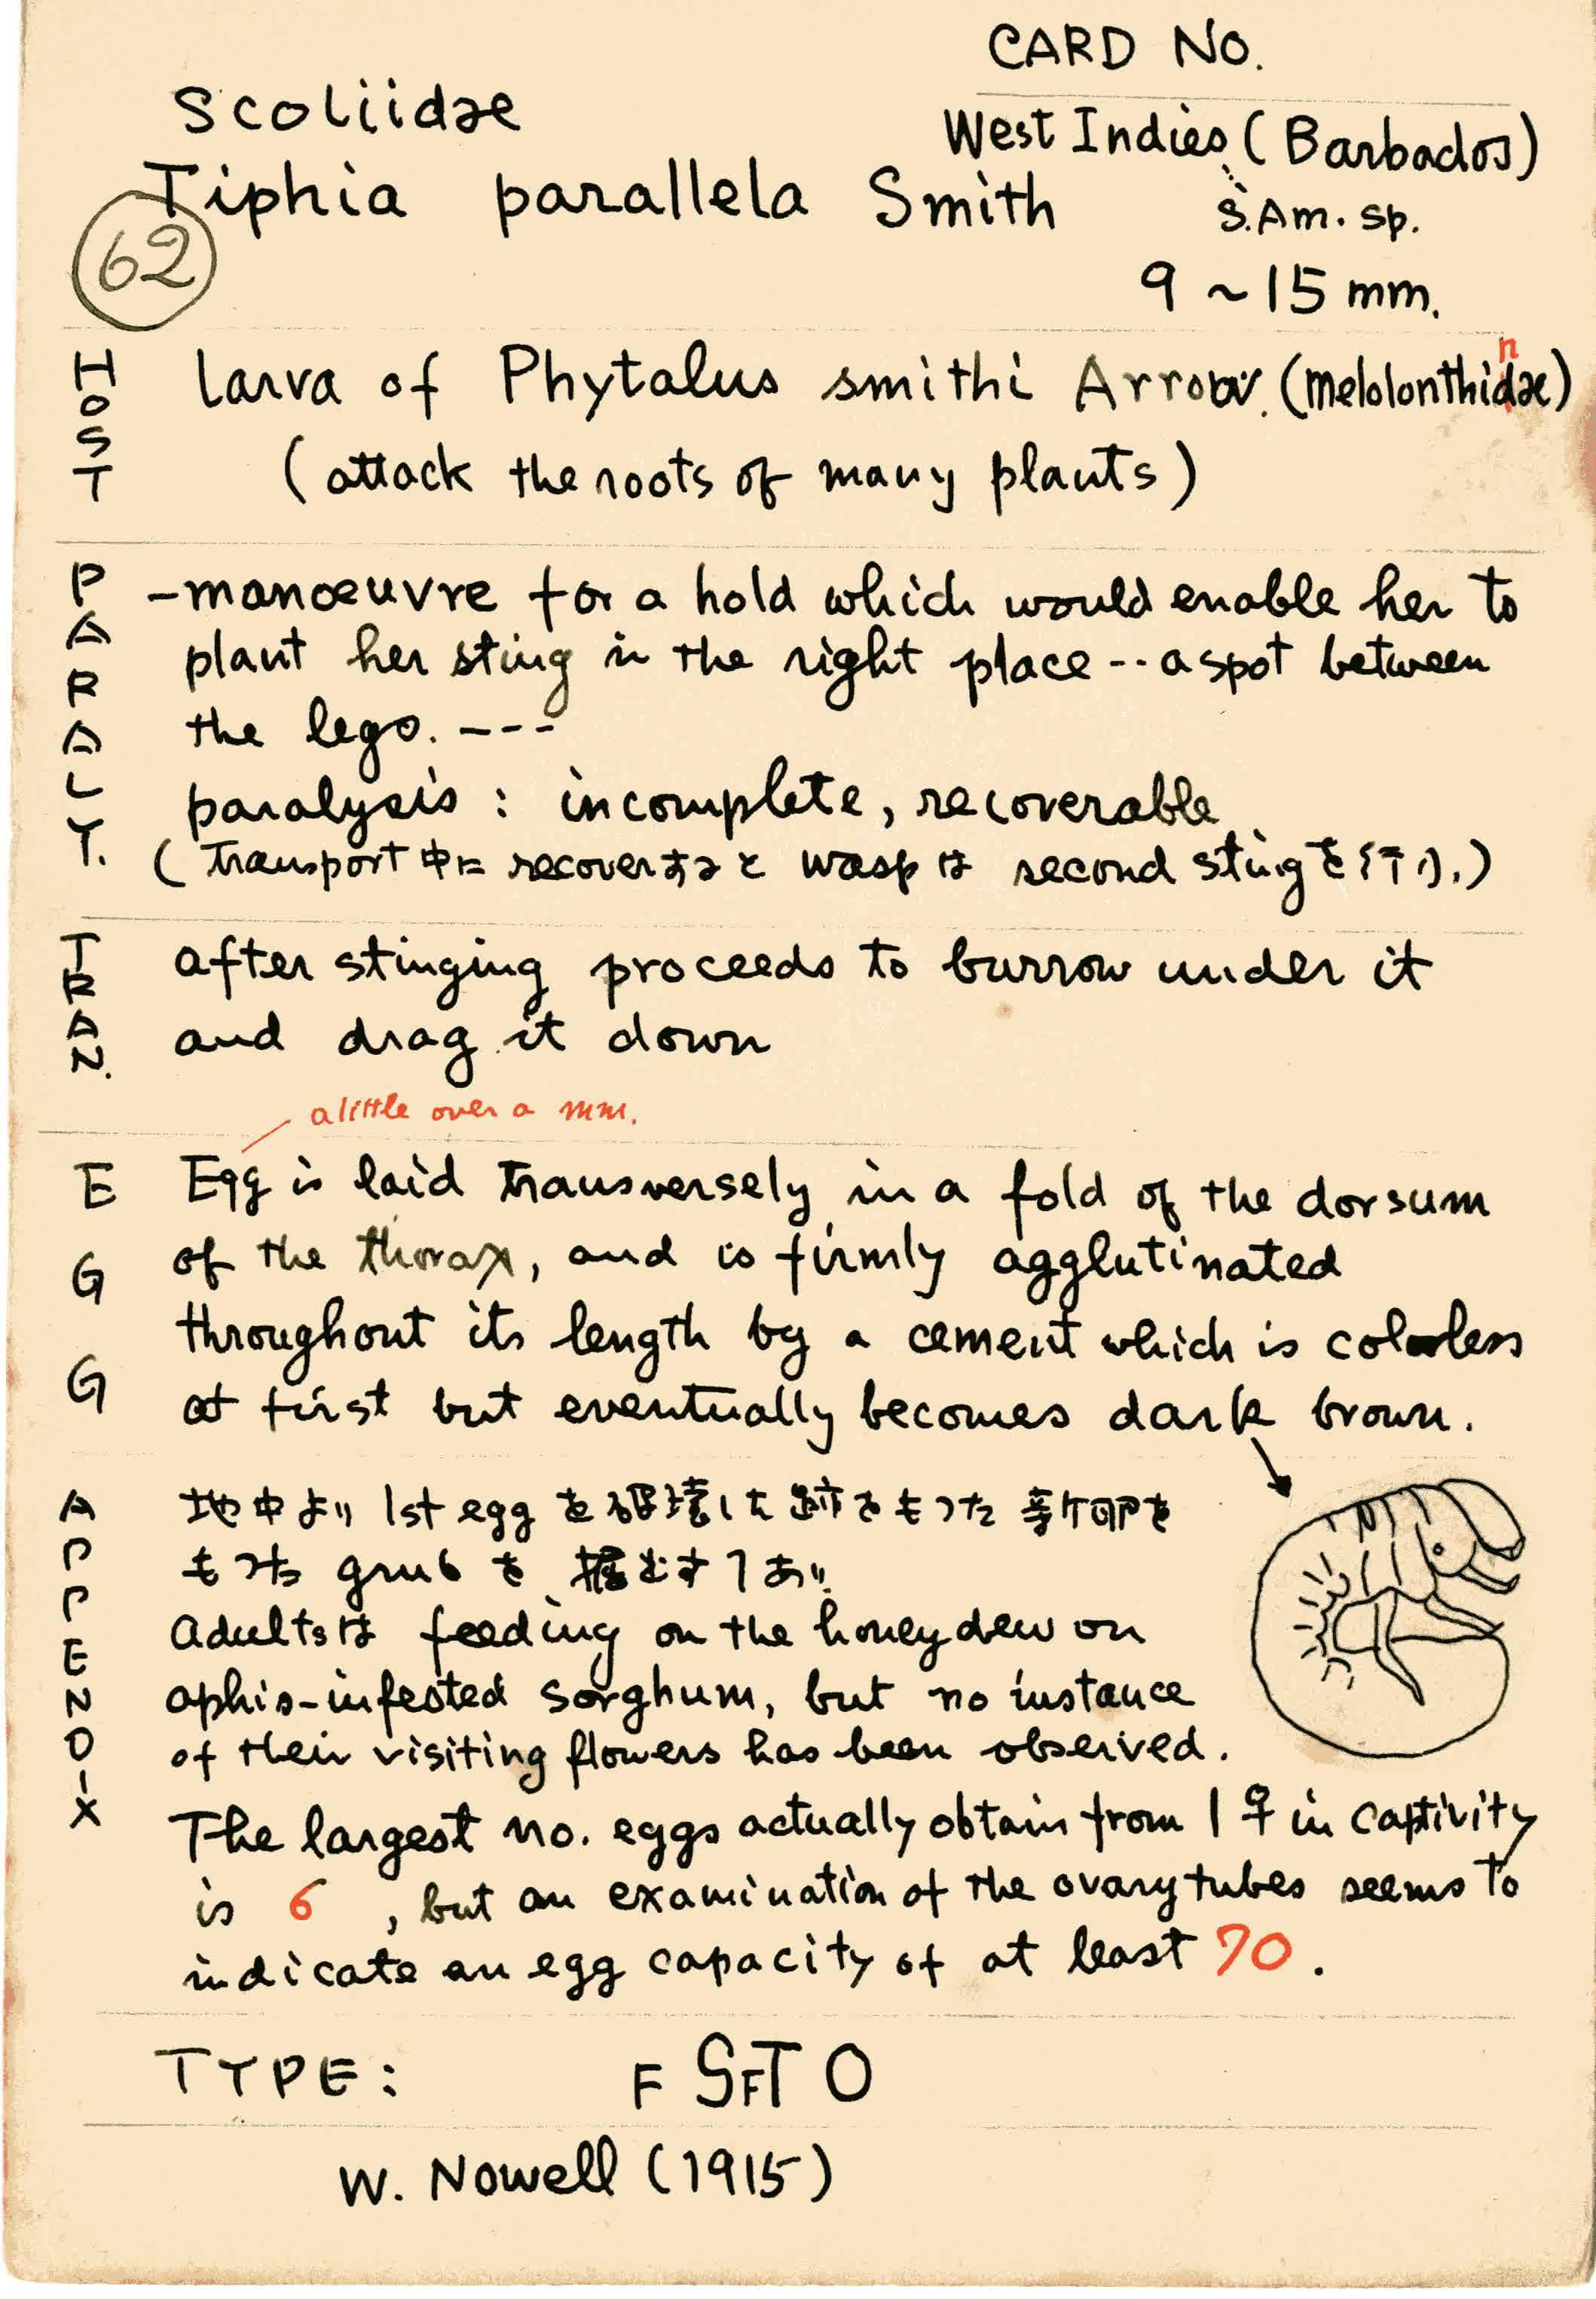 CARD NO.
Scoliidae
West Indies (Barbados)
Tiphia parallela Smith
S. Am. sp.
62
9 ~ 15 mm.
HOST
Larva of Phytalus smithi Arrow. (Melolonthidae)
n
(attack the roots of many plants)
PARALY.
-manœuvre for a hold which would enable her to
plant her sting in the right place -- a spot between
the legs. ---
paralysis : incomplete, recoverable
(transport 中に recover すると wasp は second sting を行う.)
TRAN.
after stinging proceeds to burrow under it
and drag it down
a little over a mm.
EGG
Egg is laid transversely in a fold of the dorsum
of the thorax, and is firmly agglutinated
throughout its length by a cement which is colorless
at first but eventually becomes dark brown.
APPENDIX
地中より 1st egg を破壊した跡をもった 新卵を
もつた grub を 掘出すことあり.
Adults は feeding on the honey dew on
aphis-infested sorghum, but no instance
of their visiting flowers has been observed.
The largest no. eggs actually obtain from 1 ♀ in captivity
is 6 , but an examination of the ovary tubes seems to
indicate an egg capacity of at least 70.
TYPE: F SFT O
W. Nowell (1915)